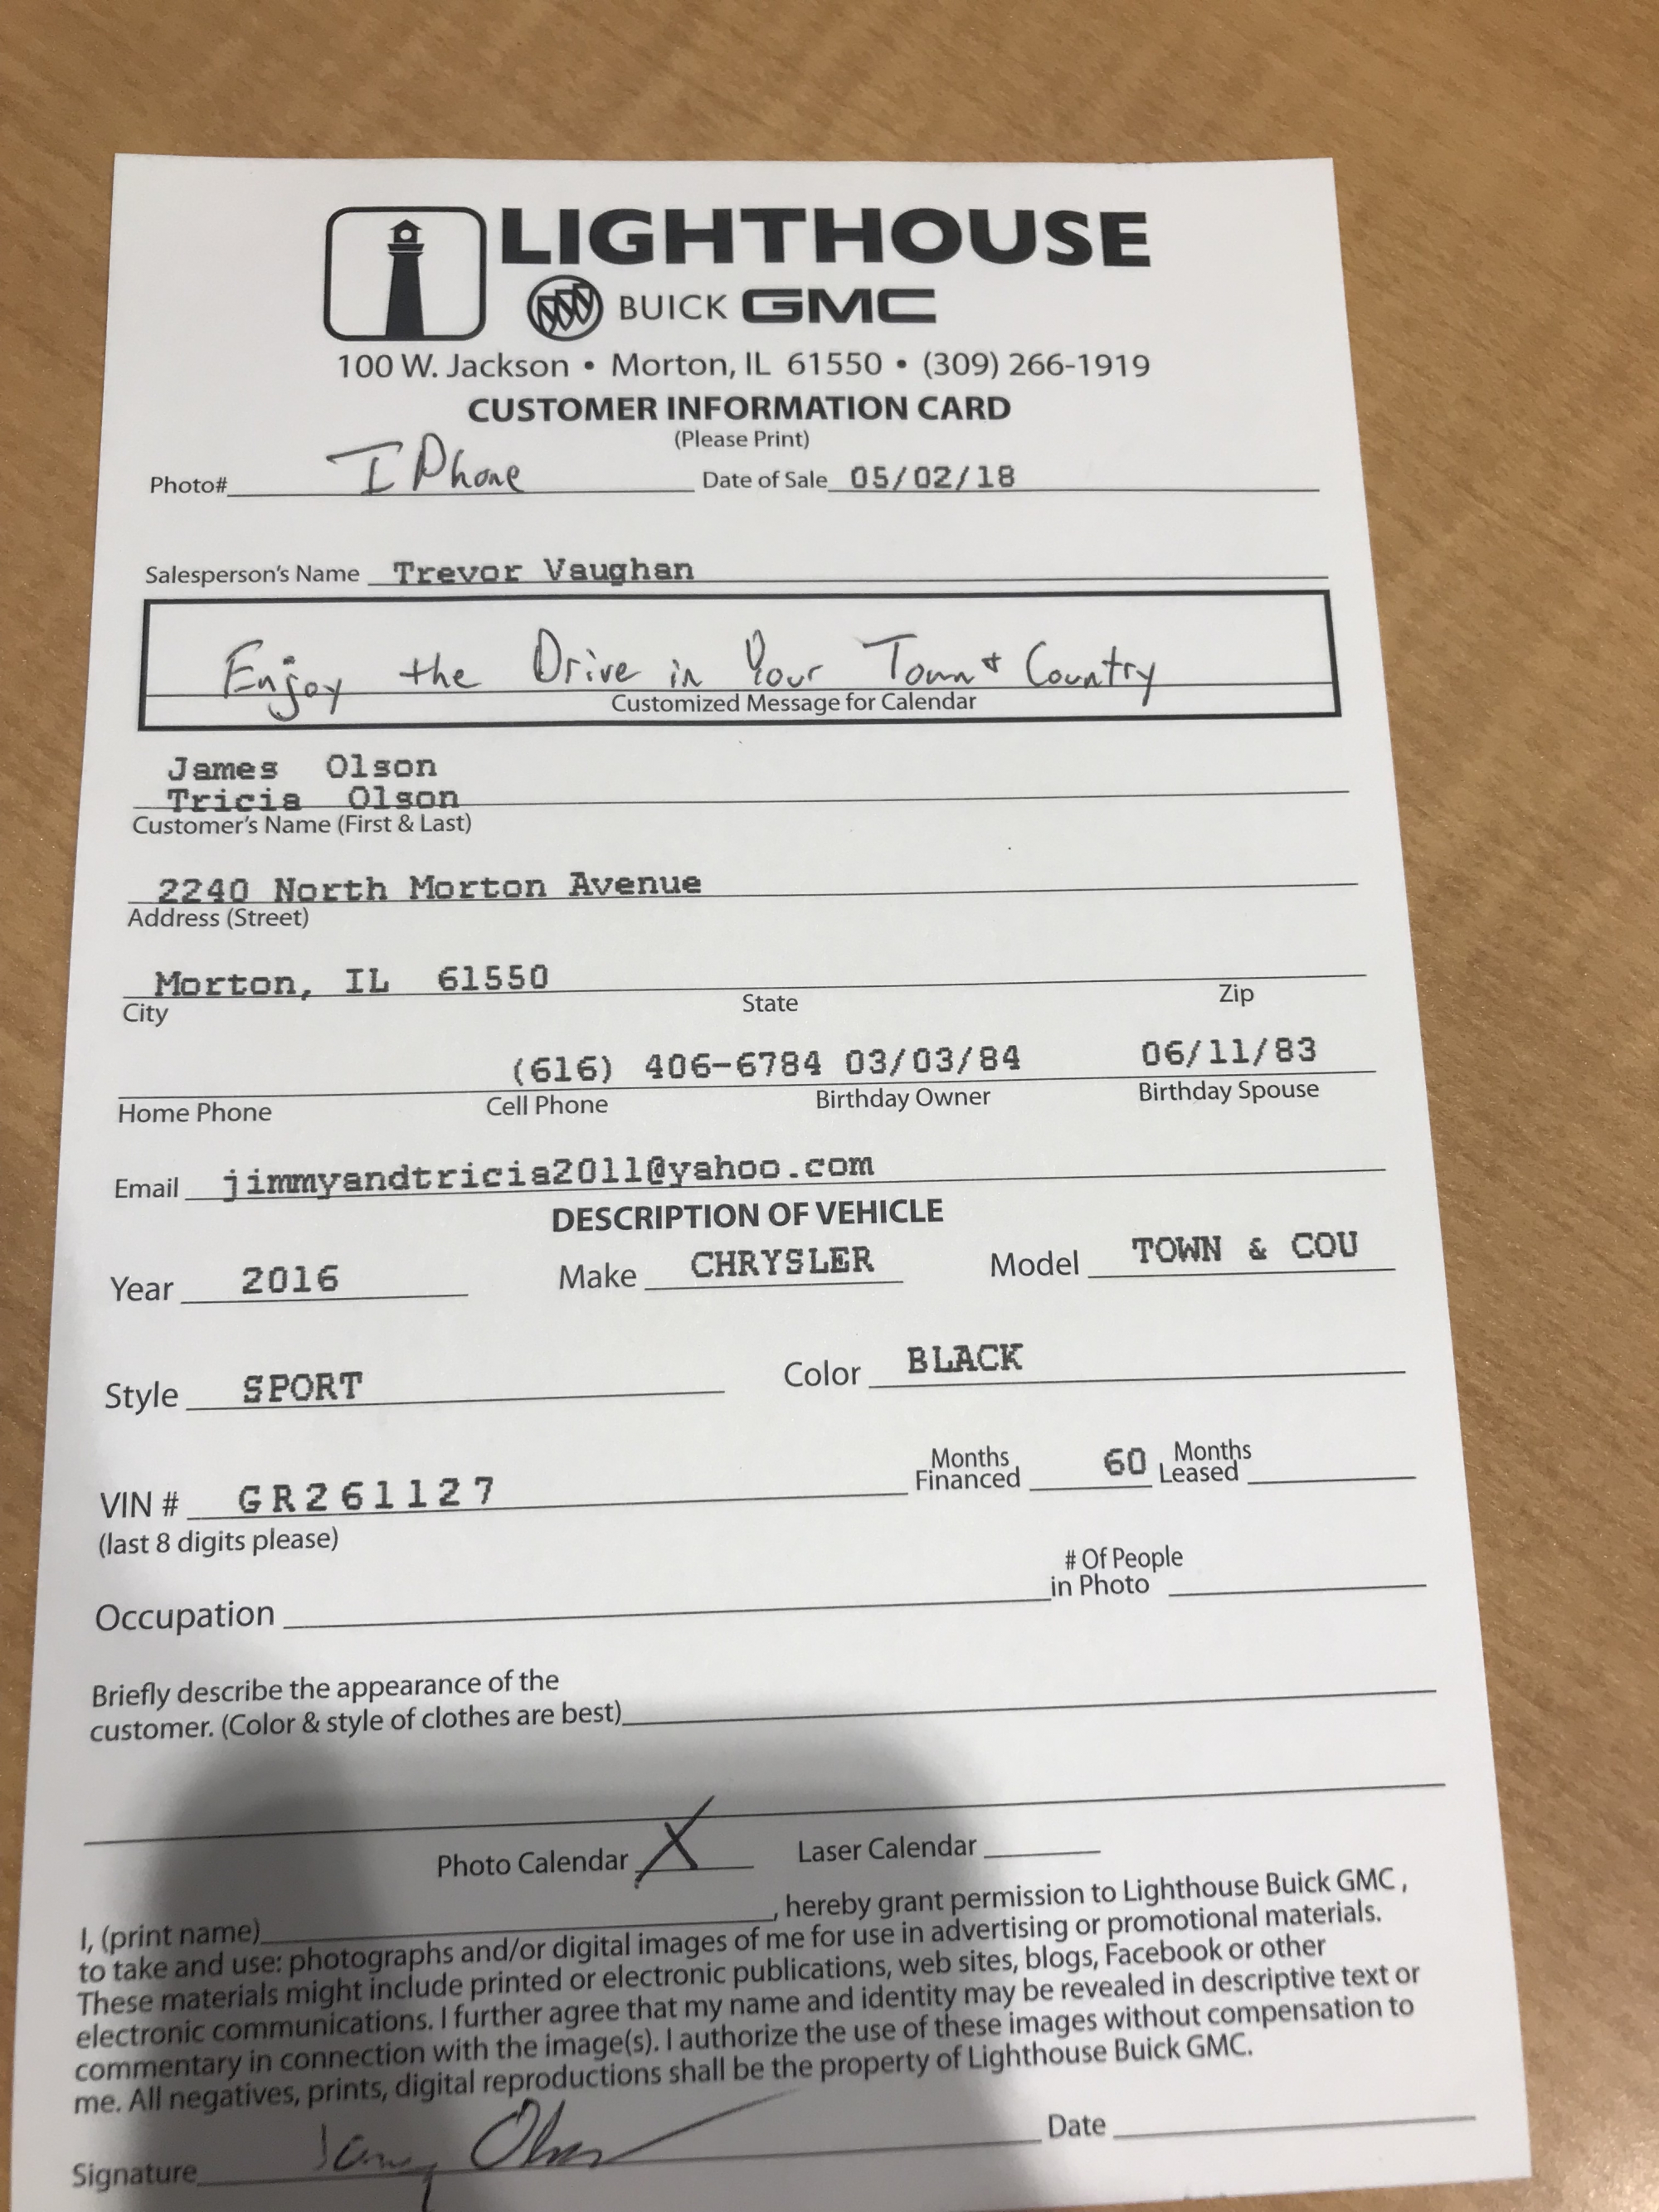 LIGHTHOUSE
BUICK GMC
100 W. Jackson • Morton, IL 61550 • (309) 266-1919
CUSTOMER INFORMATION CARD
(Please Print)
Photo# I Phone Date of Sale 05/02/18
Salesperson's Name Trevor Vaughan
Enjoy the Drive in Your Town & Country
Customized Message for Calendar
James Olson
Tricia Olson
Customer's Name (First & Last)
2240 North Morton Avenue
Address (Street)
Morton, IL 61550
City State Zip
(616) 406-6784 03/03/84 06/11/83
Home Phone Cell Phone Birthday Owner Birthday Spouse
Email jimmyandtricia2011@yahoo.com
DESCRIPTION OF VEHICLE
Year 2016 Make CHRYSLER Model TOWN & COU
Style SPORT Color BLACK
VIN # GR261127 Months Financed 60 Months Leased
(last 8 digits please)
Occupation # Of People in Photo
Briefly describe the appearance of the
customer. (Color & style of clothes are best)
Photo Calendar X Laser Calendar
I, (print name) , hereby grant permission to Lighthouse Buick GMC ,
to take and use: photographs and/or digital images of me for use in advertising or promotional materials.
These materials might include printed or electronic publications, web sites, blogs, Facebook or other
electronic communications. I further agree that my name and identity may be revealed in descriptive text or
commentary in connection with the image(s). I authorize the use of these images without compensation to
me. All negatives, prints, digital reproductions shall be the property of Lighthouse Buick GMC.
Signature Date